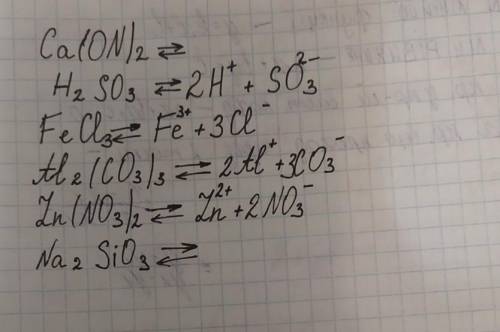 Ca(ON)2 ⇌
H2SO3 ⇌ 2H⁺ + SO3²⁻
FeCl3 ⇌ Fe³⁺ + 3Cl⁻
Al2(CO3)3 ⇌ 2Al⁺ + 3CO3⁻
Zn(NO3)2 ⇌ Zn²⁺ + 2NO3⁻
Na2SiO3 ⇌